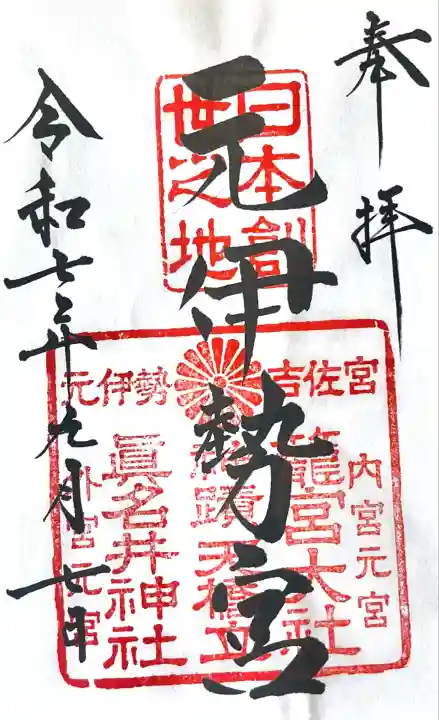 奉拝
日本創
世之地
元伊勢宮
吉佐宮
元伊勢
内宮元宮
籠宮大社
天橋立
眞名井神社
外宮元宮
令和七年九月七日